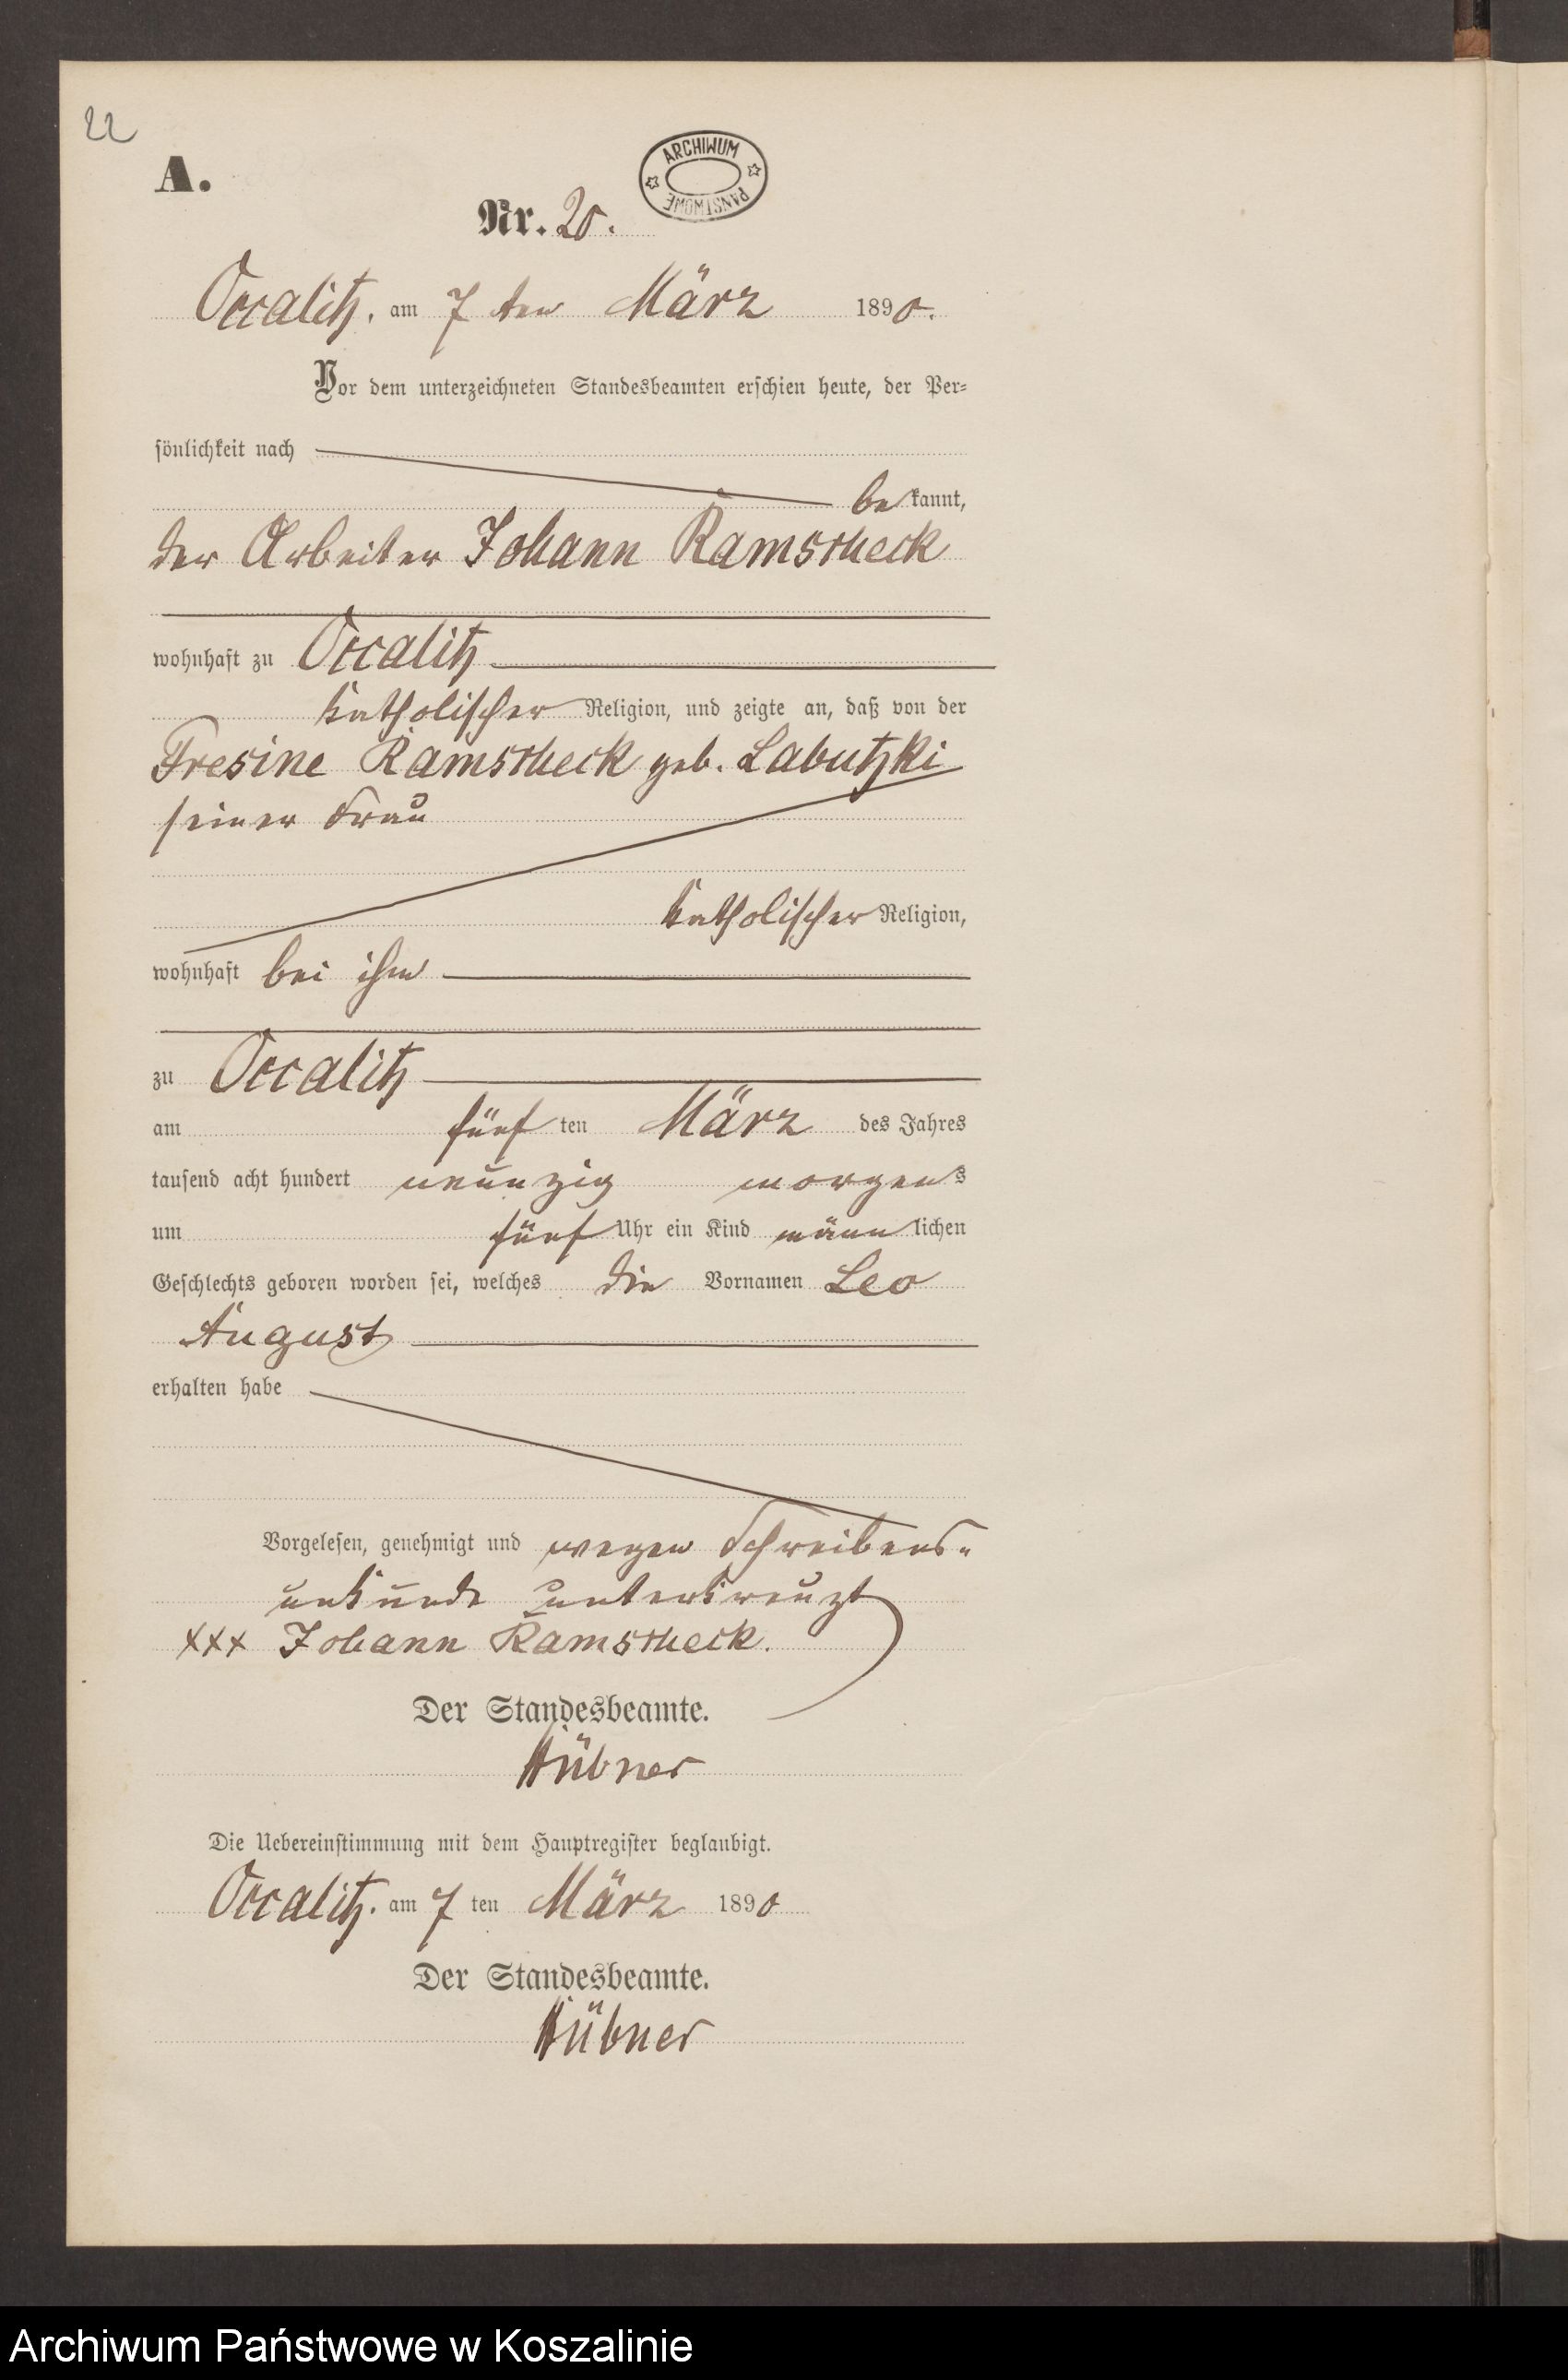 22
A.
ARCHIWUM PAŃSTWOWE
Nr. 20.
Occalitz. am 7 ten März 1890.
Vor dem unterzeichneten Standesbeamten erschien heute, der Per=
sönlichkeit nach
bekannt,
der Arbeiter Johann Ramscheck
wohnhaft zu Occalitz
katholischer Religion, und zeigte an, daß von der
Tresine Ramscheck geb. Labutzki
seiner Frau
katholischer Religion,
wohnhaft bei ihm
zu Occalitz
am fünf ten März des Jahres
tausend acht hundert neunzig morgens
um fünf Uhr ein Kind männlichen
Geschlechts geboren worden sei, welches die Vornamen Leo
August
erhalten habe
Vorgelesen, genehmigt und wegen Schreibens-
unkunde unterkreuzt
xxx Johann Ramscheck.
Der Standesbeamte.
Hübner
Die Uebereinstimmung mit dem Hauptregister beglaubigt.
Occalitz. am 7 ten März 1890
Der Standesbeamte.
Hübner
Archiwum Państwowe w Koszalinie